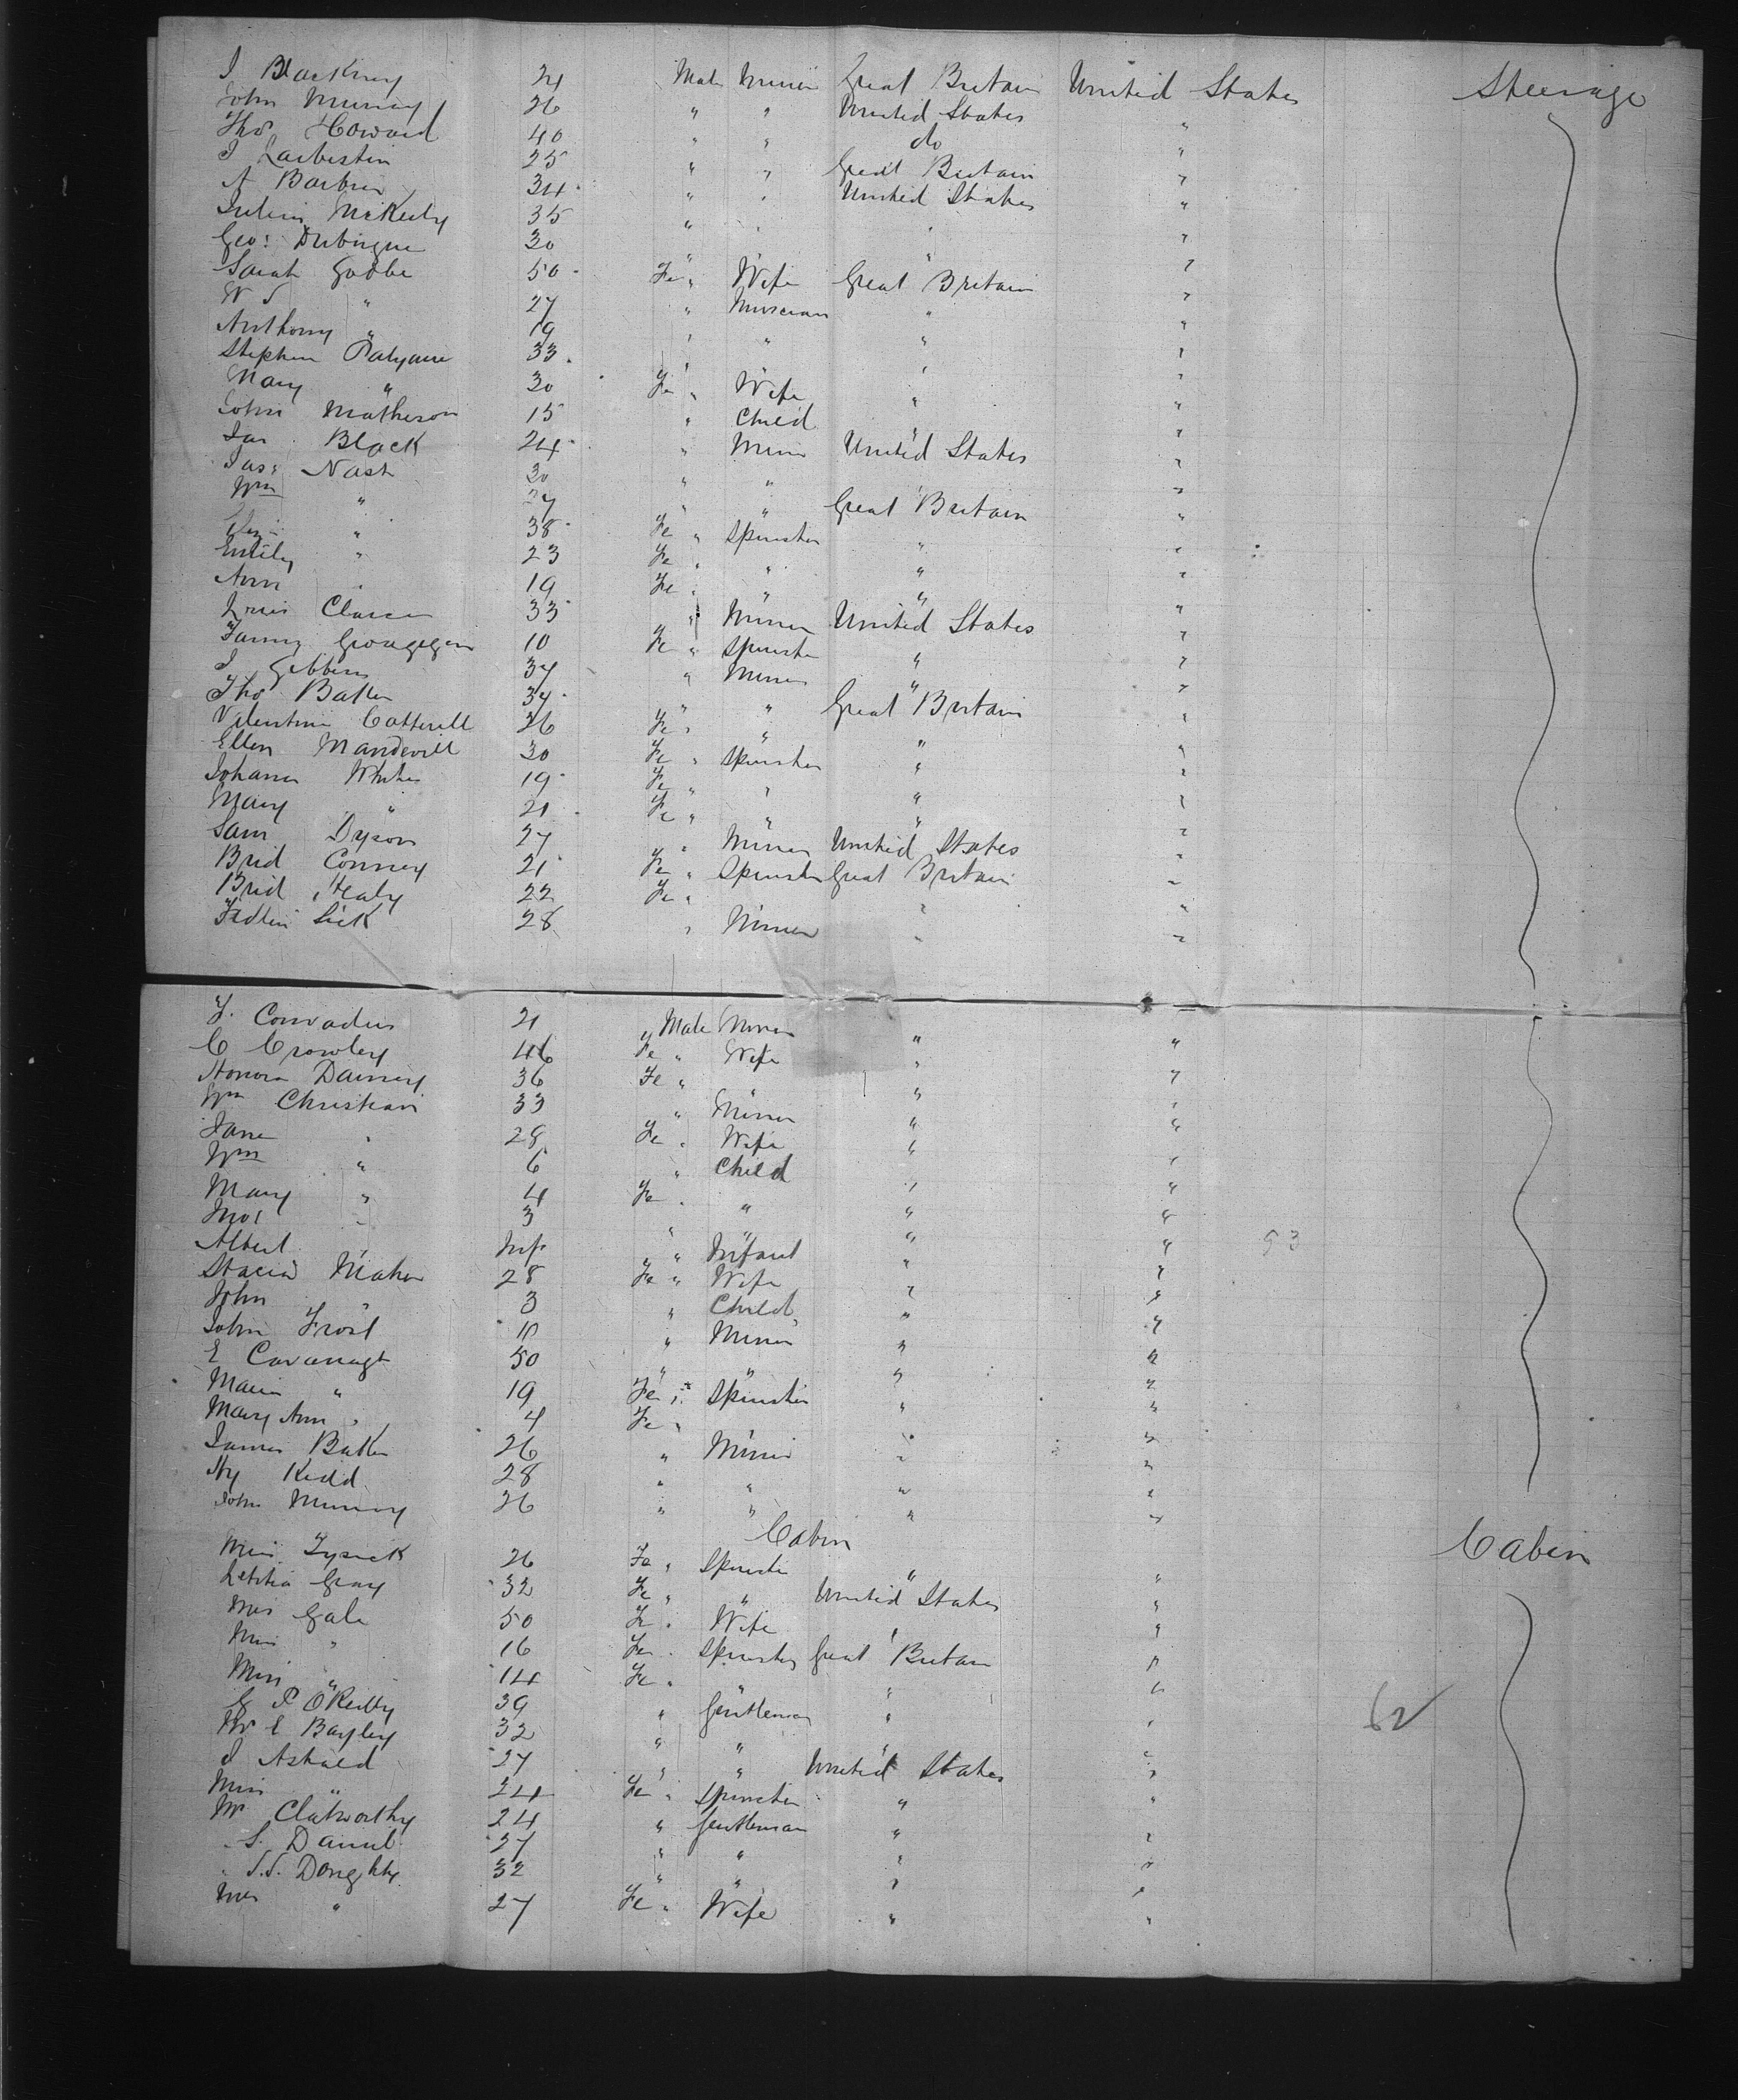 J Blackney 21 Male Miner Great Britain United States Steerage
John Murray 26 " " United States "
Thos Howard 40 " " do "
J 25 " " Great Britain "
A 34 " " United States "
35 " " " "
Geo: 30 " " " "
Sarah Gobbe 50 Fe " Wife Great Britain "
W J " 27 " Musician " "
Anthony " 19 " " " "
Stephen 33 " " " "
Mary " 30 Fe " Wife " "
John Matheson 15 " Child " "
Jas Black 24 " Miner United States "
Jas: Nash 30 " " " "
Wm " 27 " " Great Britain "
" 38 Fe " Spinster " "
Emily " 23 Fe " " " "
Ann " 19 Fe " " " "
33 " Miner United States "
Fanny 10 Fe " Spinster " "
J Gibbens 37 " Miner " "
Thos 34 " " Great Britain "
Valentine Cotterell 26 Fe " " " "
Ellen Mandevill 30 Fe " Spinster " "
Johana White 19 Fe " " " "
Mary " 21 Fe " " " "
Sam Dyson 27 " Miner United States "
Brid Conney 21 Fe " Spinster Great Britain "
Brid Healy 22 Fe " " "
28 " Miner " "
J. 21 Male Miner " "
C Crowley 46 Fe " Wife " "
Honora 36 Fe " " "
Wm Christian 33 " Miner " "
Jane " 28 Fe " Wife " "
Wm " 6 " Child " "
Mary " 4 Fe " " " "
" 3 " " "
Albert " Inf " Infant " " 93
Stacia Maher 28 Fe " Wife " "
John " 3 " Child " "
John Frost " Miner " "
E Cavanagh 50 " " " "
Maria " 19 Fe " Spinster " "
Mary Ann " 4 Fe " " "
James 26 " Miner " "
Hy Kidd 28 " " " "
John Murray 26 " " " "
Cabin Cabin
Miss 26 Fe " Spinster " "
Letitia Gray 32 Fe " " United States "
Mrs Gale 50 Fe " Wife " "
Miss " 16 Fe " Spinster Great Britain "
Miss " 14 Fe " " " "
P O'Reilly 39 " Gentleman " " 62
Mr E Bayley 32 " " " "
J 27 " " United States "
Miss " 24 Fe " Spinster " "
Mr Clatworthy 24 " Gentleman " "
" S. Daniel 27 " " " "
" J.J. Doughty 32 " " " "
Mrs " 27 Fe " Wife " "